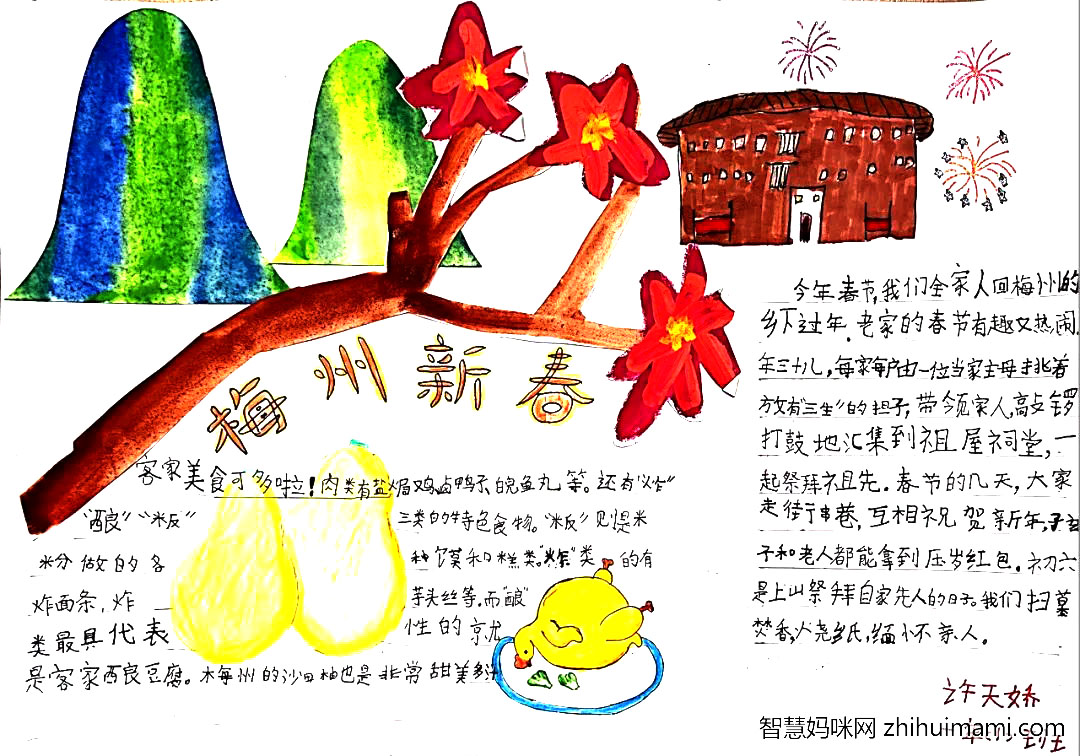 梅州新春
客家美食可多啦!肉类有盐焗鸡,卤鸭子,鱼丸等。还有“炸”
“酿”“粄”三类的特色食物。“粄”见惯米
粉做的各种馍和糕类。“炸”类的有
炸面条,炸芋头丝等。而“酿”
类最具代表性的就
是客家酿豆腐。梅州的沙田柚也是非常甜美多汁
今年春节,我们全家人回梅州的
乡下过年.老家的春节有趣又热闹.
年三十儿,每家每户由一位当家主母挑着
放有“三生”的担子,带领家人,敲锣
打鼓地汇集到祖屋祠堂,一
起祭拜祖先.春节的几天,大家
走街串巷,互相祝贺新年,孩
子和老人都能拿到压岁红包.初六
是上山祭拜自家先人的日子。我们扫墓
焚香,火烧纸,缅怀亲人.
许天娇
智慧妈咪网 zhihuimami.com